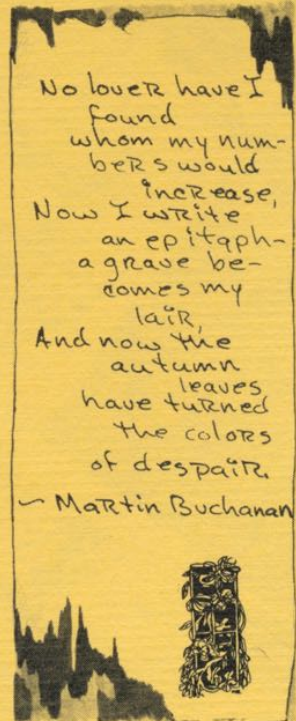 No lover have I
found
whom my num-
bers would
increase,
Now I write
an epitaph-
a grave be-
comes my
lair,
And now the
autumn
leaves
have turned
the colors
of despair.
~ Martin Buchanan